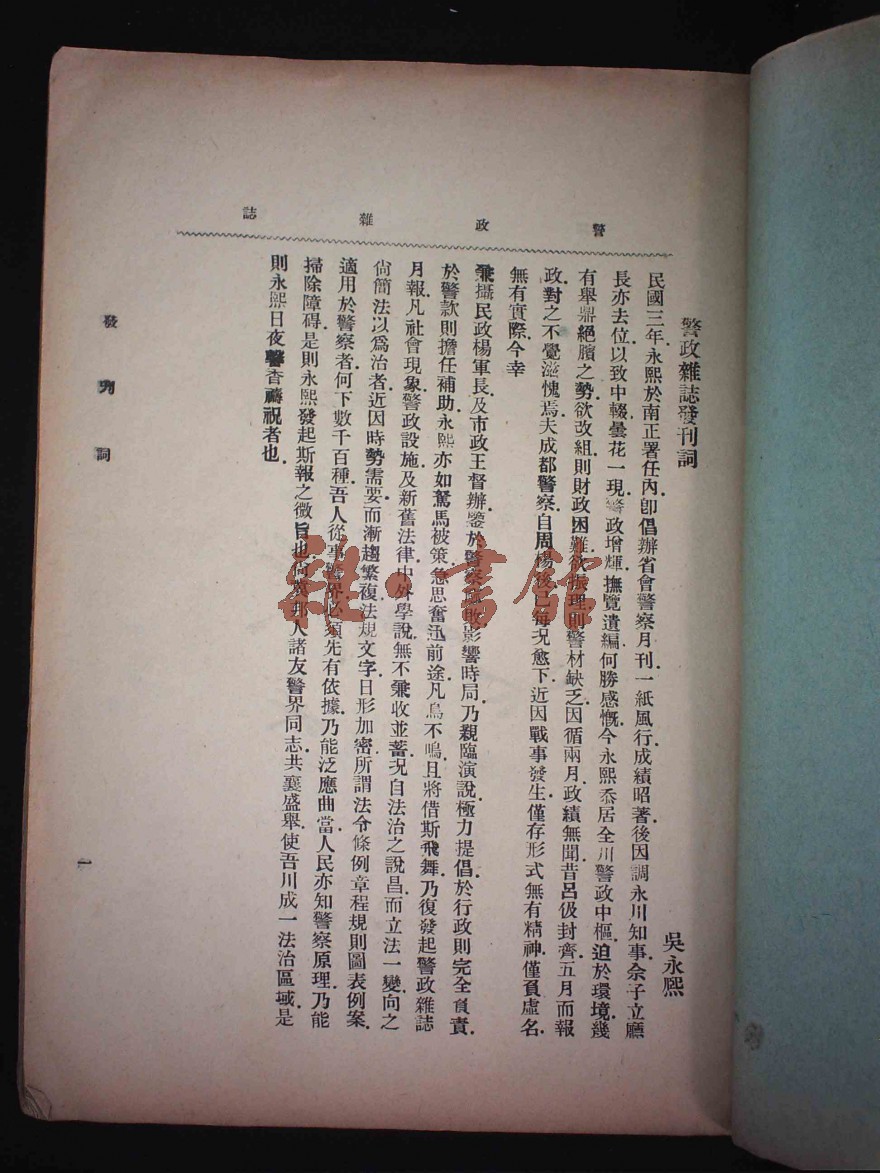 警政雜誌
警政雜誌發刊詞
吳永熙
民國三年.永熙於南正署任內.卽倡辦省會警察月刊一紙風行成績昭著後因調永川知事.余子立廳
長亦去位.以致中輟曇花一現.警政增輝.撫覽遺編.何勝感慨.今永熙忝居全川警政中樞.迫於環境.幾
有舉鼎絕臏之勢.欲改組則財政困難.欲振理則警材缺乏.因循兩月.政績無聞.昔呂伋封齊.五月而報
政.對之不覺滋愧焉.夫成都警察.自周楊後.已每況愈下.近因戰事發生.僅存形式.無有精神.僅負虛名.
無有實際.今幸
兼攝民政楊軍長.及市政王督辦.鑒於警察 影響時局.乃親臨演說.極力提倡.於行政則完全負責.
於警款則擔任補助.永熙亦如駑馬被策.急思奮迅前途.凡鳥不鳴.且將借斯飛舞.乃復發起警政雜誌
月報.凡社會現象.警政設施.及新舊法律.中外學說.無不兼收並蓄.況自法治之說昌.而立法一變.向之
尙簡法以爲治者.近因時勢需要.而漸趨繁複.法規文字.日形加密.所謂法令條例章程規則圖表例案.
適用於警察者.何下數千百種.吾人從事警界.必須先有依據.乃能泛應曲當.人民亦知警察原理.乃能
掃除障碍.是則永熙發起斯報之微旨也.尙冀邦人諸友.警界同志.共襄盛舉.使吾川成一法治區域.是
則永熙日夜馨香禱祝者也.
發刊詞
一
雜·書館